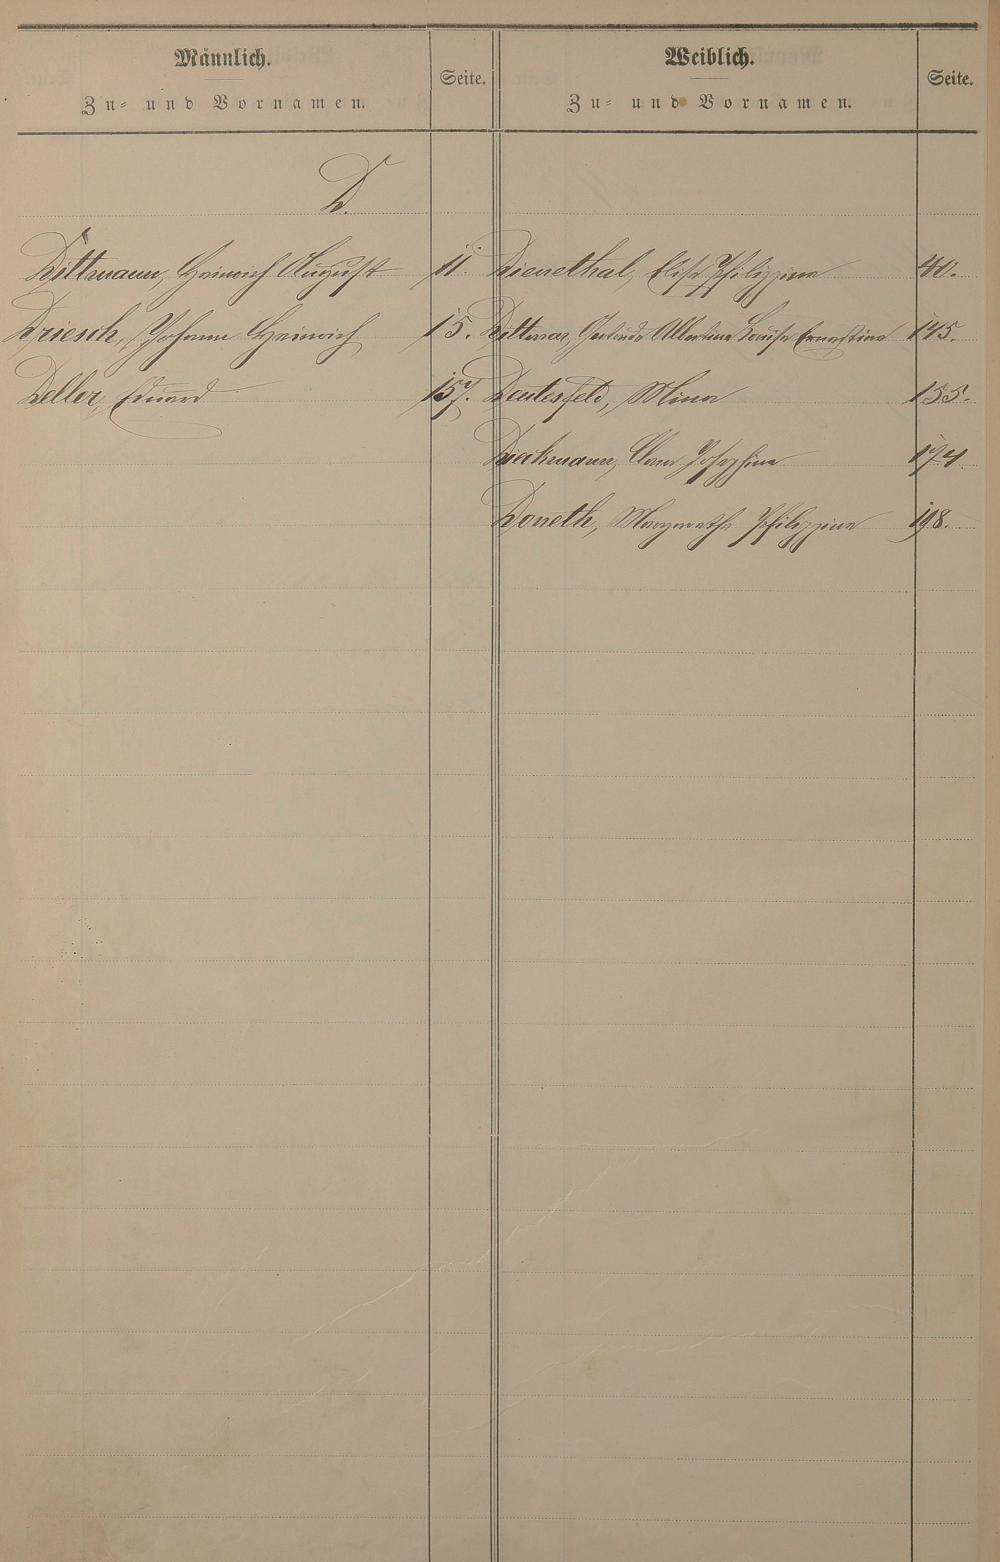 Männlich. Seite. Weiblich. Seite.
Zu- und Vornamen. Zu- und Vornamen.
D.
Dittmann, Heinrich August 11. Dienethal, Elise Philippine 40.
Driesch, Johann Heinrich 15. Dittmar, Gertrude Albertine Louise Ernestine 145.
Deller, Eduard 157. Deutesfeld, Mina 155.
Diekmann, Clara Josephine 174.
Doneth, Margarethe Philippine 198.